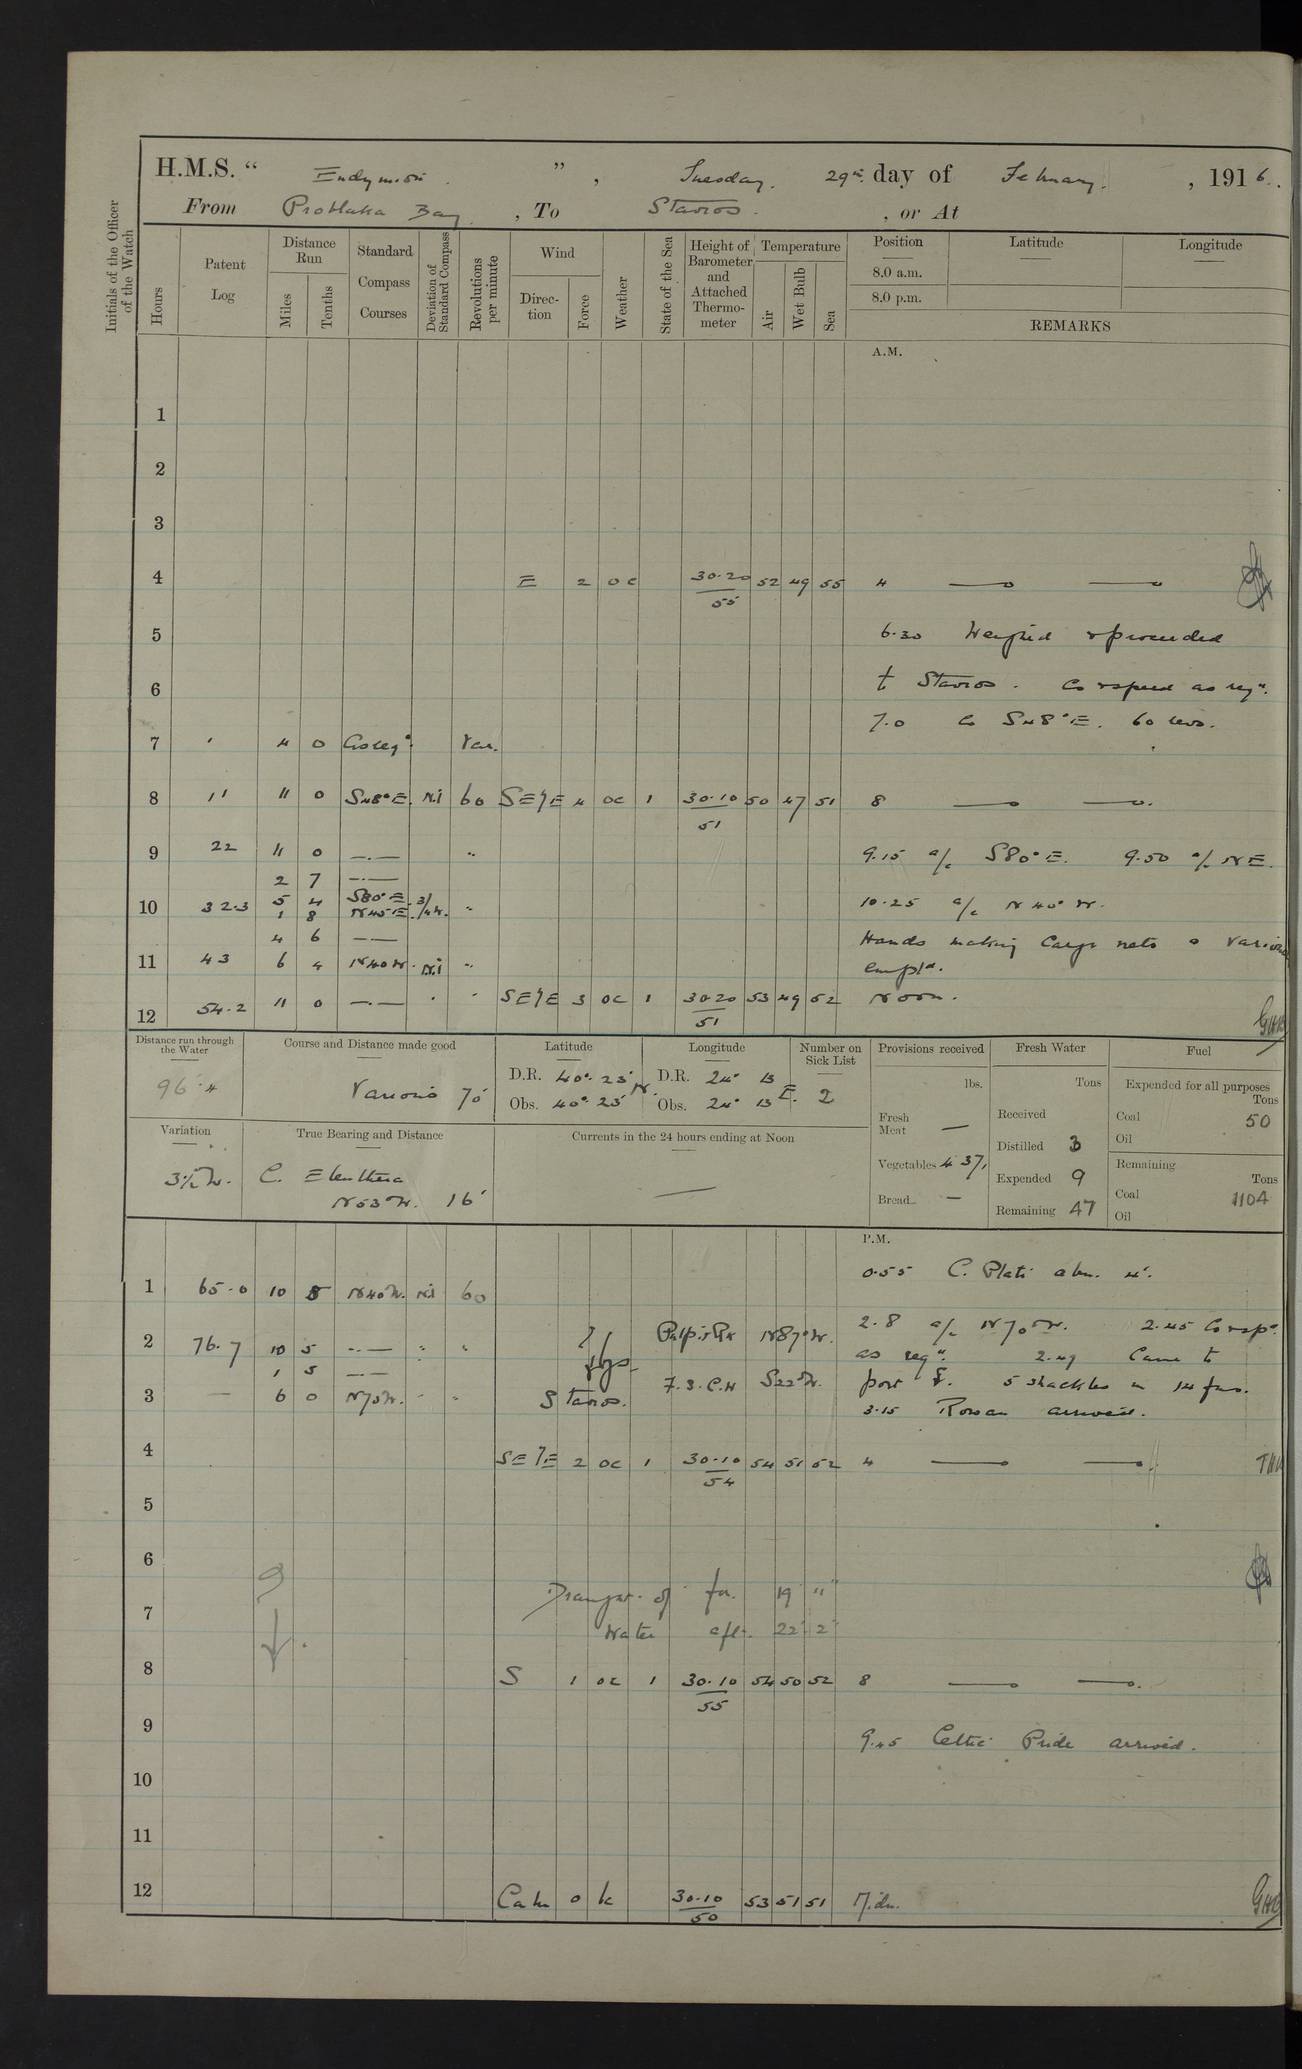 H.M.S. “ Endymion ” , Tuesday. 29th day of February. , 1916.
From Problaka Bay , To Stavros. , or At
Initials of the Officer of the Watch
Hours
Patent Log
Distance Run
Miles
Tenths
Standard Compass Courses
Deviation of Standard Compass
Revolutions per minute
Wind
Direction
Force
Weather
State of the Sea
Height of Barometer and Attached Thermometer
Temperature
Air
Wet Bulb
Sea
Position Latitude Longitude
8.0 a.m.
8.0 p.m.
REMARKS
A.M.
1
2
3
4 E 2 oc 30.20 52 49 55 4
55
5 6.30 Weighed & proceeded
6 to Stavros. Co & speed as reqd.
7.0 Co S48°E. 60 revs.
7 4 0 Co as reqd Var.
8 11 11 0 S48°E. Nil 60 SE/E 4 oc 1 30.10 50 47 51 8
51
9 22 11 0 —.— " 9.15 a/c S80°E. 9.50 a/c NE.
2 7 —.—
5 4 S80°E.
10 32.3 1 8 N45E. 3/4W. " 10.25 a/c N40°W.
4 6 —— Hands making Cargo nets & various
11 43 6 4 N40W. Nil " empld.
12 54.2 11 0 —.— " " SE/E 3 oc 1 30.20 53 49 52 Noon.
51
GHB
Distance run through the Water
96.4
Course and Distance made good
Various 70'
Latitude
D.R. 40° 25' N.
Obs. 40° 25'
Longitude
D.R. 24° 13 E.
Obs. 24° 13
Number on Sick List
2
Provisions received
lbs.
Fresh Meat —
Vegetables 437
Bread —
Fresh Water
Tons
Received
Distilled 3
Expended 9
Remaining 47
Fuel
Expended for all purposes
Tons
Coal 50
Oil
Remaining
Tons
Coal 1104
Oil
Variation
3½W.
True Bearing and Distance
C. Eleuthera
N53°W. 16'
Currents in the 24 hours ending at Noon
—
P.M.
0.55 C. Plati abm. 4'.
1 65.0 10 5 N40W. Nil 60
2 76.7 10 5 —.— " " Pulpit Rk N87°W. 2.8 a/c N70°W. 2.45 Co & spd
as reqd. 2.49 Came to
1 5 ——
3 — 6 0 N70W. " " Stavros. S22°W. port 5 shackles in 14 fms.
3.15 Rowan arrived.
4 SE/E 2 oc 1 30.10 54 51 52 4
54
5
6
Draught of for. 19' "
7 Water aft. 22' 2"
8 S 1 oc 1 30.10 54 50 52 8
55
9 9.45 Celtic Pride arrived.
10
11
12 Calm 0 bc 30.10 53 51 51 Midn.
50
GHB